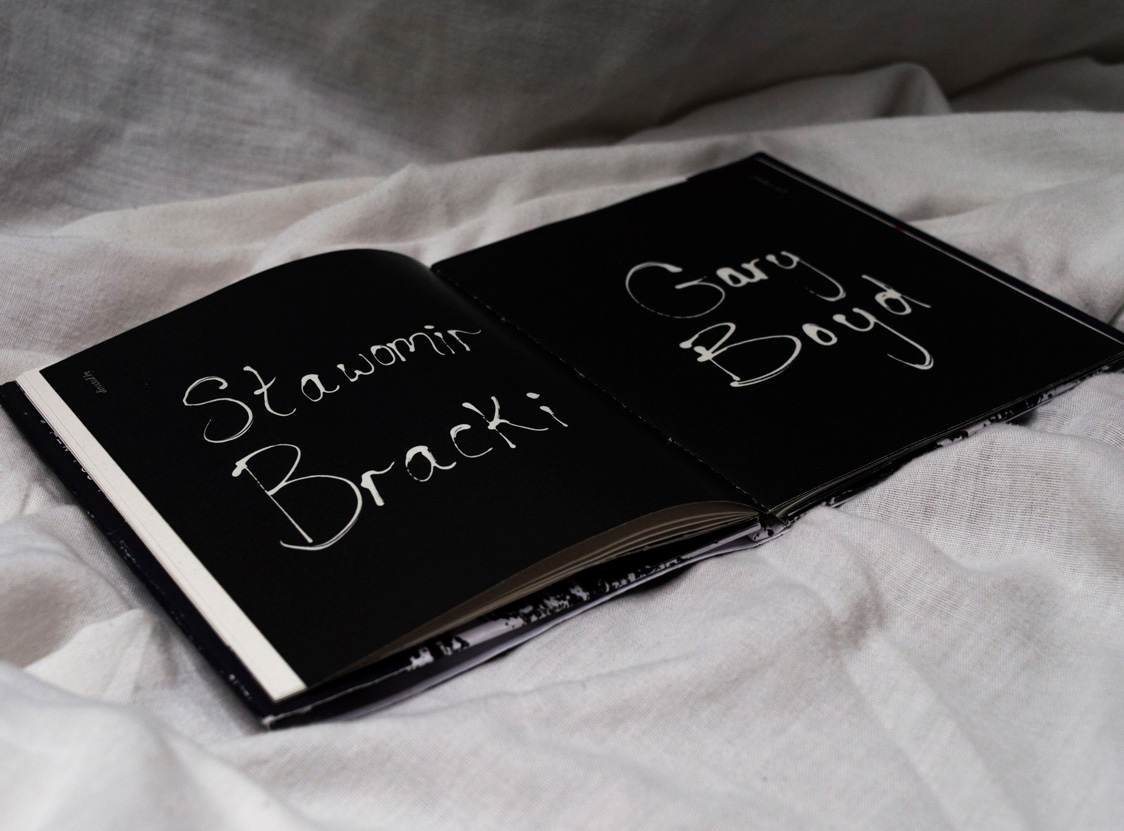 Sławomir
Bracki
Gary
Boyd